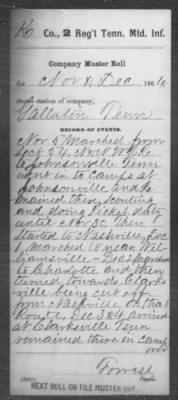 K Co., 2 Reg't Tenn. Mtd. Inf.
Company Muster Roll
for Nov & Dec, 1864.
station of company,
Gallatin Tenn
RECORD OF EVENTS.
Nov 5 Marched from
to Johnsonville Tenn
went in to camps at
Johnsonville and re
mained there scouting
and doing Picket duty
until Nov 30, then
started to Nashville, Dec
1 Marched to near Wil
liamsville - Dec 2 Marched
to Charlotte and then
turned towards Clarks
ville being cut off
from Nashville on that
Route, Dec 3 & 4 arrived
at Clarksville Tenn
remained there in Camp
over
Copyist.
NEXT ROLL ON FILE MUSTER OUT.